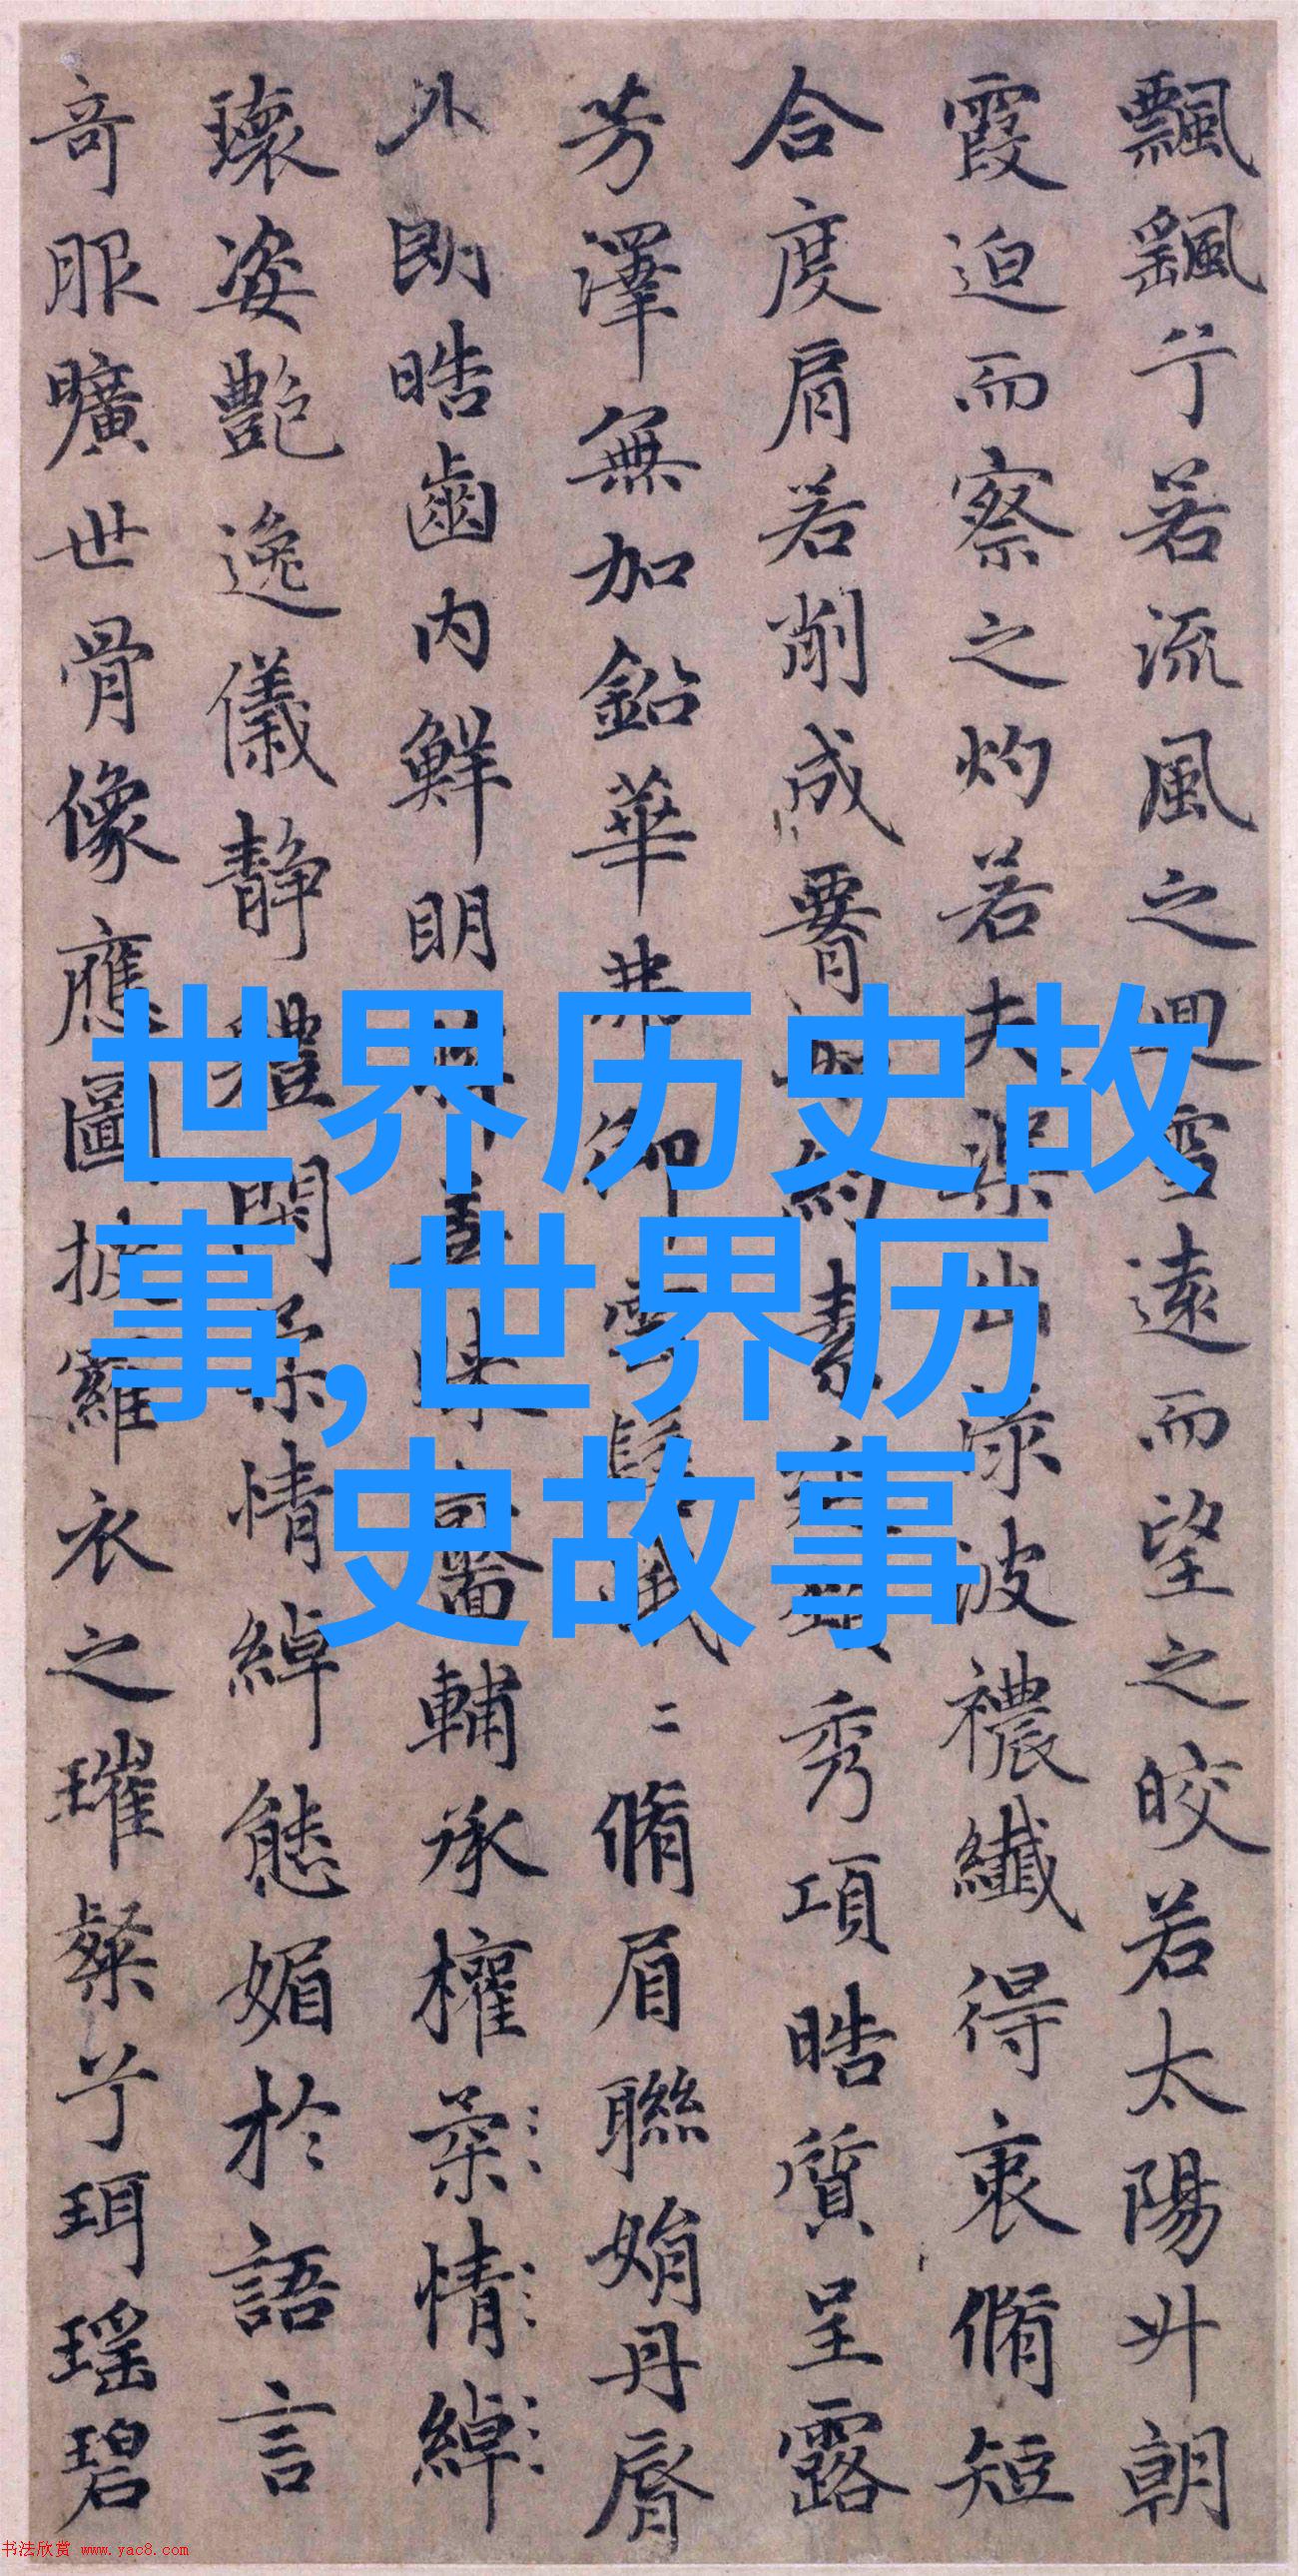 飄颻兮若流風之迴雪遠而望之皎若太陽升朝
霞迫而察之灼若夫渠出淥波襛纖得衷脩短
合度肩若削成腰如約素延頸秀項皓質呈露
芳澤無加鉛華弗御雲髻峨二脩眉聯娟丹脣
外朗皓齒內鮮明眸善睞靨輔承權柔情綽
瓌姿艷逸儀静體閑柔情綽態媚於語言
奇服曠世骨像應圖披羅衣之璀粲兮珥瑤碧
世界历史故
事,世界历
史故事
书法欣赏 www.yac8.com